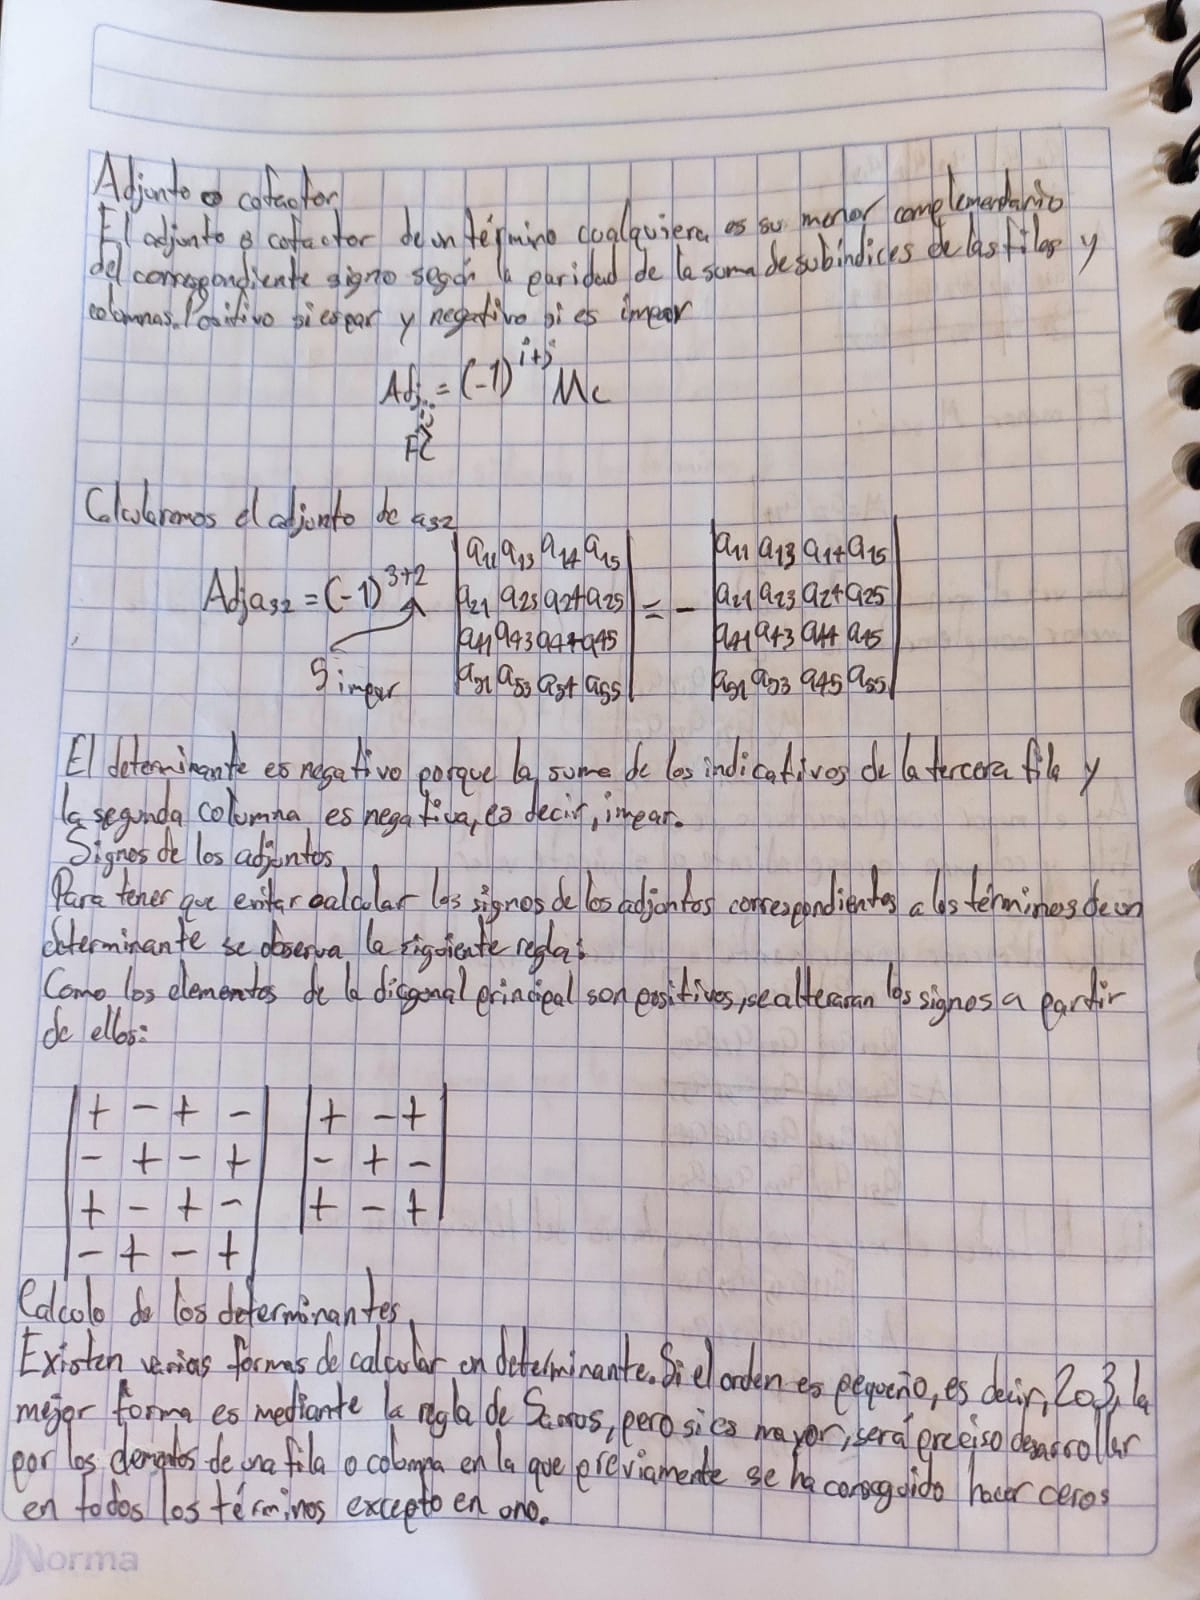 Adjunto o cofactor
El adjunto o cofactor de un término cualquiera es su menor complementario
del correspondiente signo según la paridad de la suma de subíndices de las filas y
columnas. Positivo si es par y negativo si es impar
Adj = (-1)^{i+j} Mc
FC
Calcularemos el adjunto de a32
Adj a32 = (-1)^{3+2} | a11 a13 a14 a15 | = - | a11 a13 a14 a15 |
| a21 a23 a24 a25 | | a21 a23 a24 a25 |
| a41 a43 a44 a45 | | a41 a43 a44 a45 |
5 impar | a51 a53 a54 a55 | | a51 a53 a45 a55 |
El determinante es negativo porque la suma de los indicativos de la tercera fila y
la segunda columna es negativa, es decir, impar.
Signos de los adjuntos
Para tener que evitar calcular los signos de los adjuntos correspondientes a los términos de un
determinante se observa la siguiente regla:
Como los elementos de la diagonal principal son positivos, se alteraran los signos a partir
de ellos:
| + - + - | | + - + |
| - + - + | | - + - |
| + - + - | | + - + |
| - + - + |
Calculo de los determinantes
Existen varias formas de calcular un determinante. Si el orden es pequeño, es decir, 2 o 3, la
mejor forma es mediante la regla de Sarros, pero si es mayor, será preciso desarrollar
por los elementos de una fila o columna en la que previamente se ha conseguido hacer ceros
en todos los términos excepto en uno.
Norma